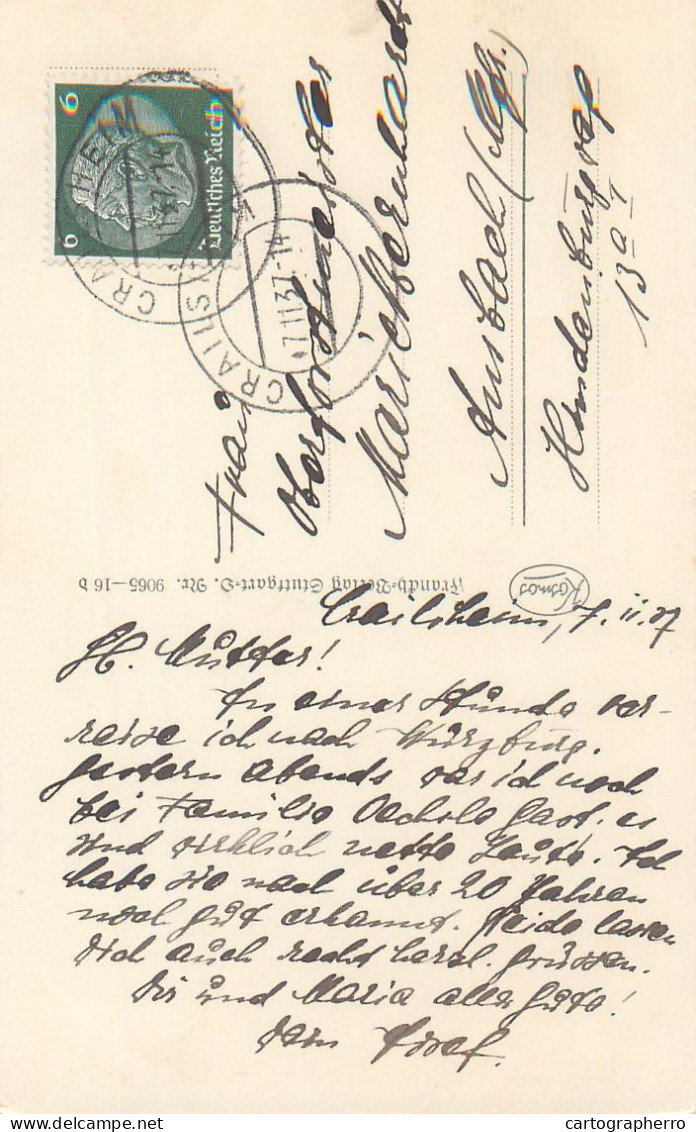 6
6
Deutsches Reich
CRAILSHEIM
-7.11.37-14
Frau
Oberforstmeister
Marie Bernhardt
Ansbach (Mfr.)
Hindenburgstr
13 a I
Franckh-Verlag Stuttgart-O. Nr. 9065—16 b
Kosmos
Crailsheim, 7.11.37
Lb. Mutter!
In einer Stunde ver-
reise ich nach Würzburg.
Gestern abends war ich noch
bei Familie Oechsle Gast. es
sind wirklich nette Leute. Ich
habe sie nach über 20 Jahren
noch gut erkannt. Beide lassen
Dich auch recht herzl. grüssen.
Dir und Maria alles Gute!
Dein Josef.
cartographerro
www.delcampe.net